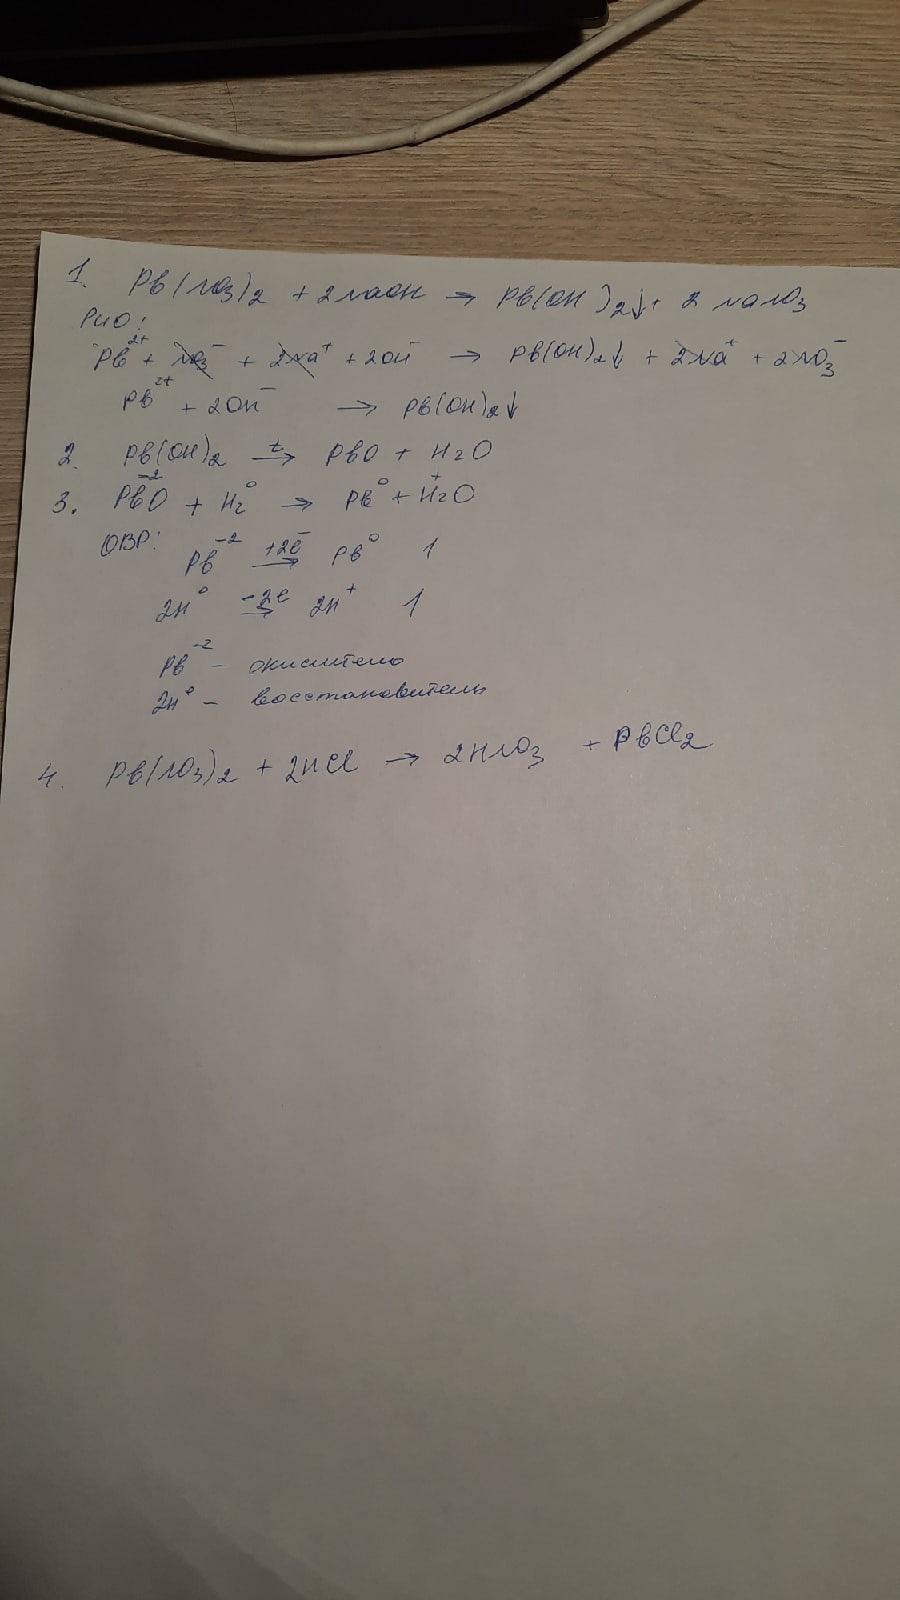 1. Pb(NO3)2 + 2NaOH → Pb(OH)2↓ + 2 NaNO3
РИО:
Pb²⁺ + NO3⁻ + 2Na⁺ + 2OH⁻ → Pb(OH)2↓ + 2Na⁺ + 2NO3⁻
Pb²⁺ + 2OH⁻ → Pb(OH)2↓
2. Pb(OH)2 →ᵗ PbO + H2O
3. Pb⁻²O + H2⁰ → Pb⁰ + H⁺2O
ОВР: Pb⁻² +2e⁻→ Pb⁰ 1
2H⁰ -2e→ 2H⁺ 1
Pb⁻² – окислитель
2H⁰ – восстановитель
4. Pb(NO3)2 + 2HCl → 2HNO3 + PbCl2